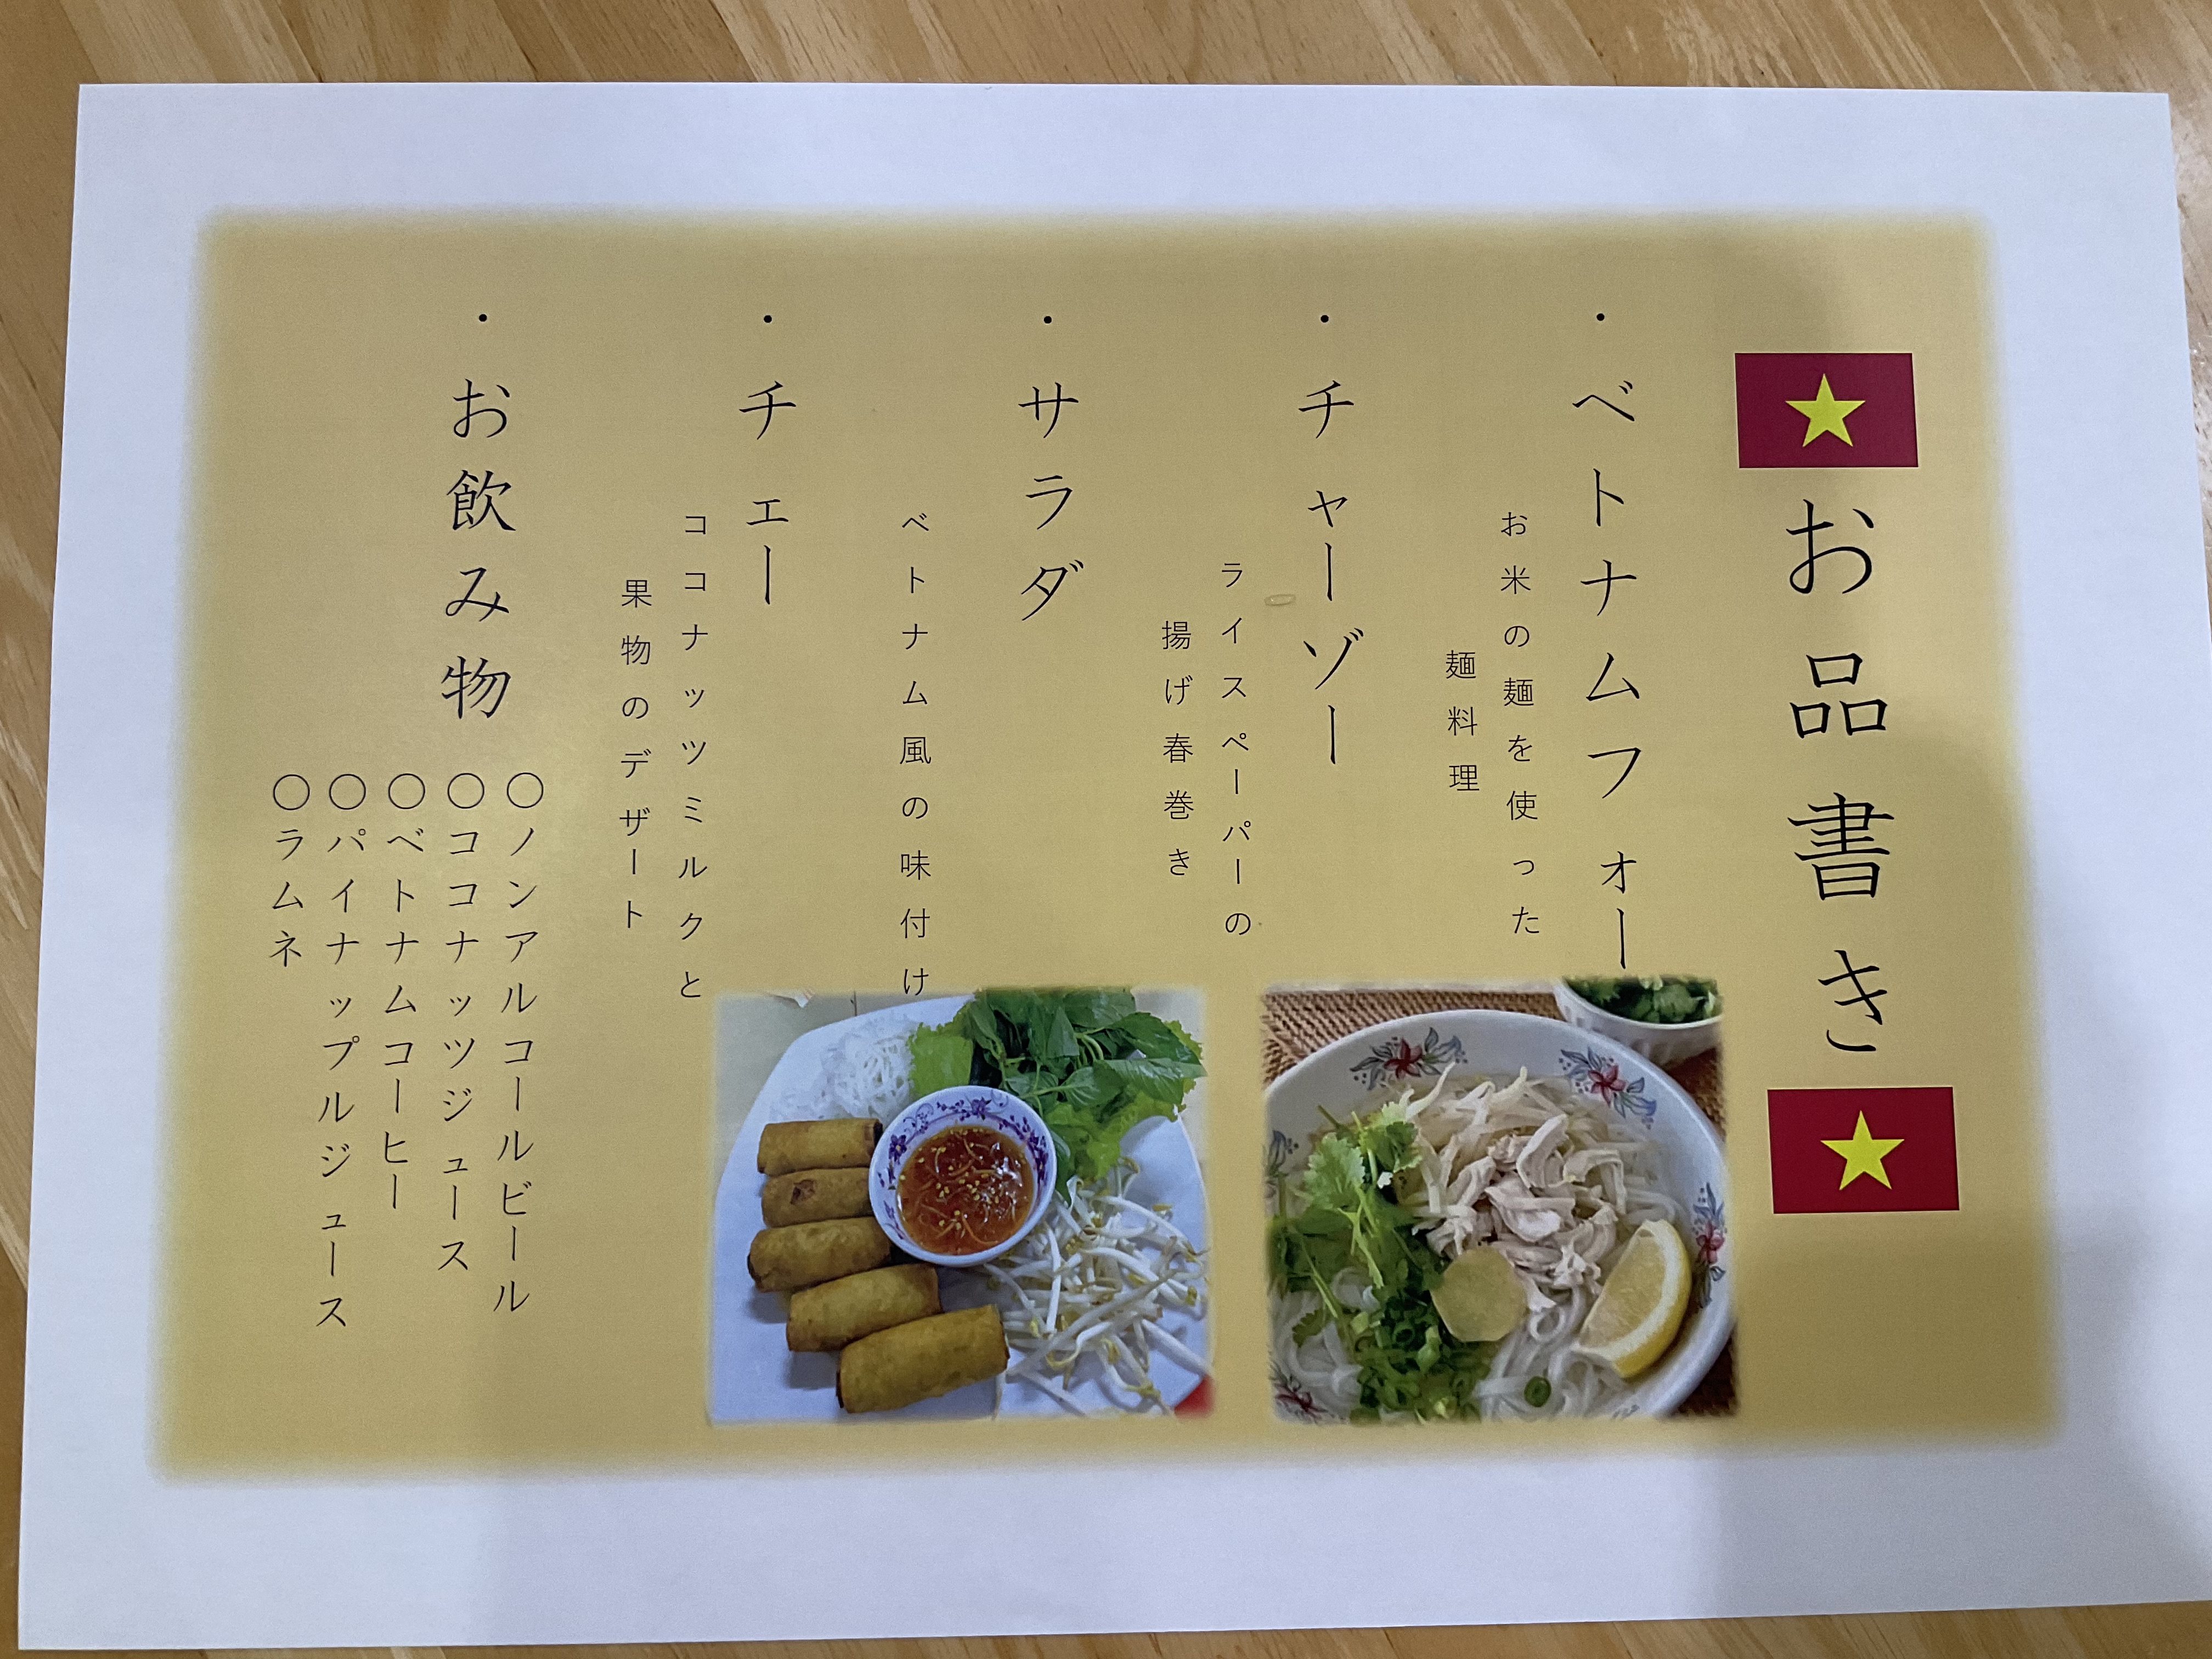 お品書き
・ベトナムフォー
お米の麺を使った
麺料理
・チャーゾー
ライスペーパーの
揚げ春巻き
・サラダ
ベトナム風の味付け
・チェー
ココナッツミルクと
果物のデザート
・お飲み物
○ノンアルコールビール
○ココナッツジュース
○ベトナムコーヒー
○パイナップルジュース
○ラムネ